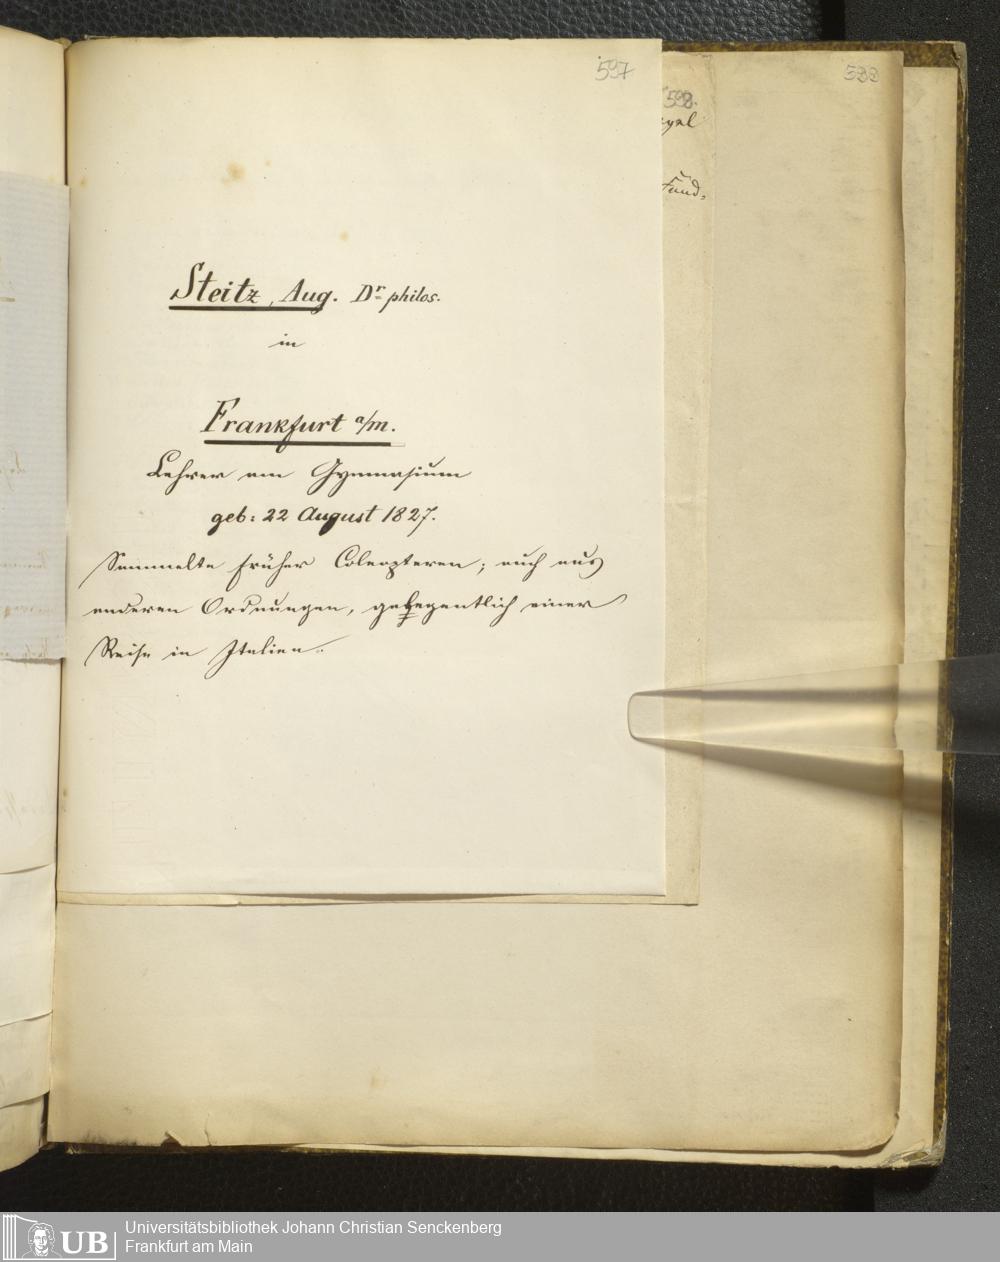 597
Steitz, Aug. Dr. philos.
in
Frankfurt a/m.
Lehrer am Gymnasium
geb: 22 August 1827.
Sammelte früher Coleopteren; auch aus
anderen Ordnungen, gelegentlich einer
Reise in Italien.
598.
599
UB
Universitätsbibliothek Johann Christian Senckenberg
Frankfurt am Main